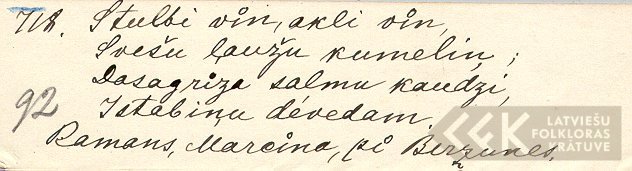 718. Stulbi vin, akli vin,
Svešu ļaužu kumeliņ;
Dasagrīza salmu kaudzi,
92
Istabiņu dēvedam.
Ramans, Marcina, pi Bērzunes.
LATVIEŠU
FOLKLORAS
KRĀTUVE